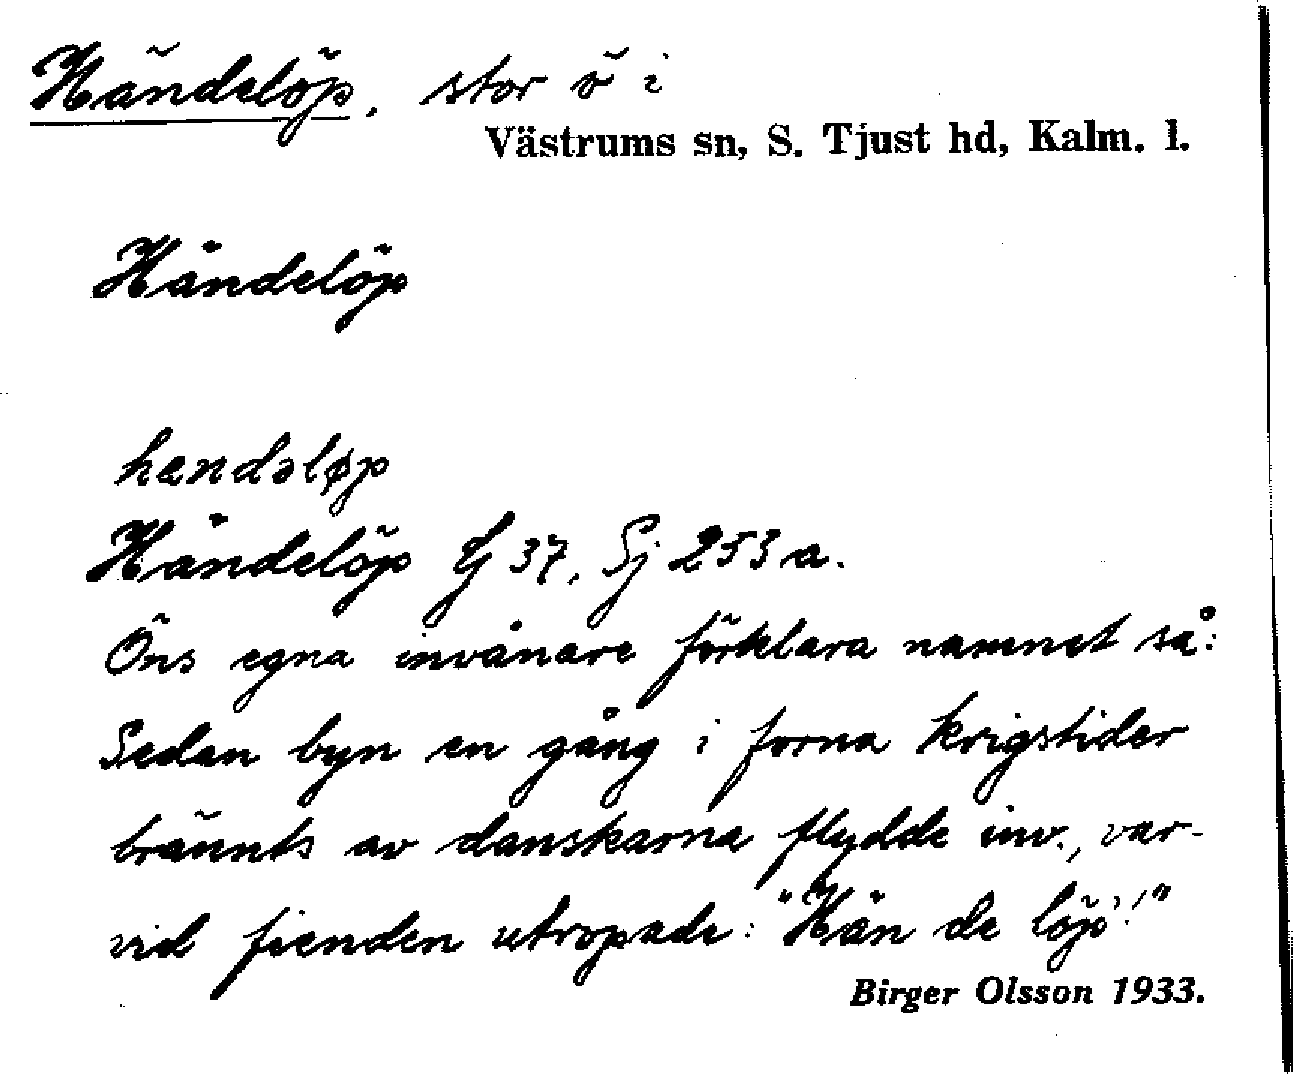 Händelöp, stor ö i
Västrums sn, S. Tjust hd, Kalm. l.
Händelöp
hændəløp
Händelöp Ej 37, Sj 253 a.
Öns egna invånare förklara namnet så:
Sedan byn en gång i forna krigstider
bränts av danskarna flydde inv., var-
vid fienden utropade: "Hän de löp!"
Birger Olsson 1933.